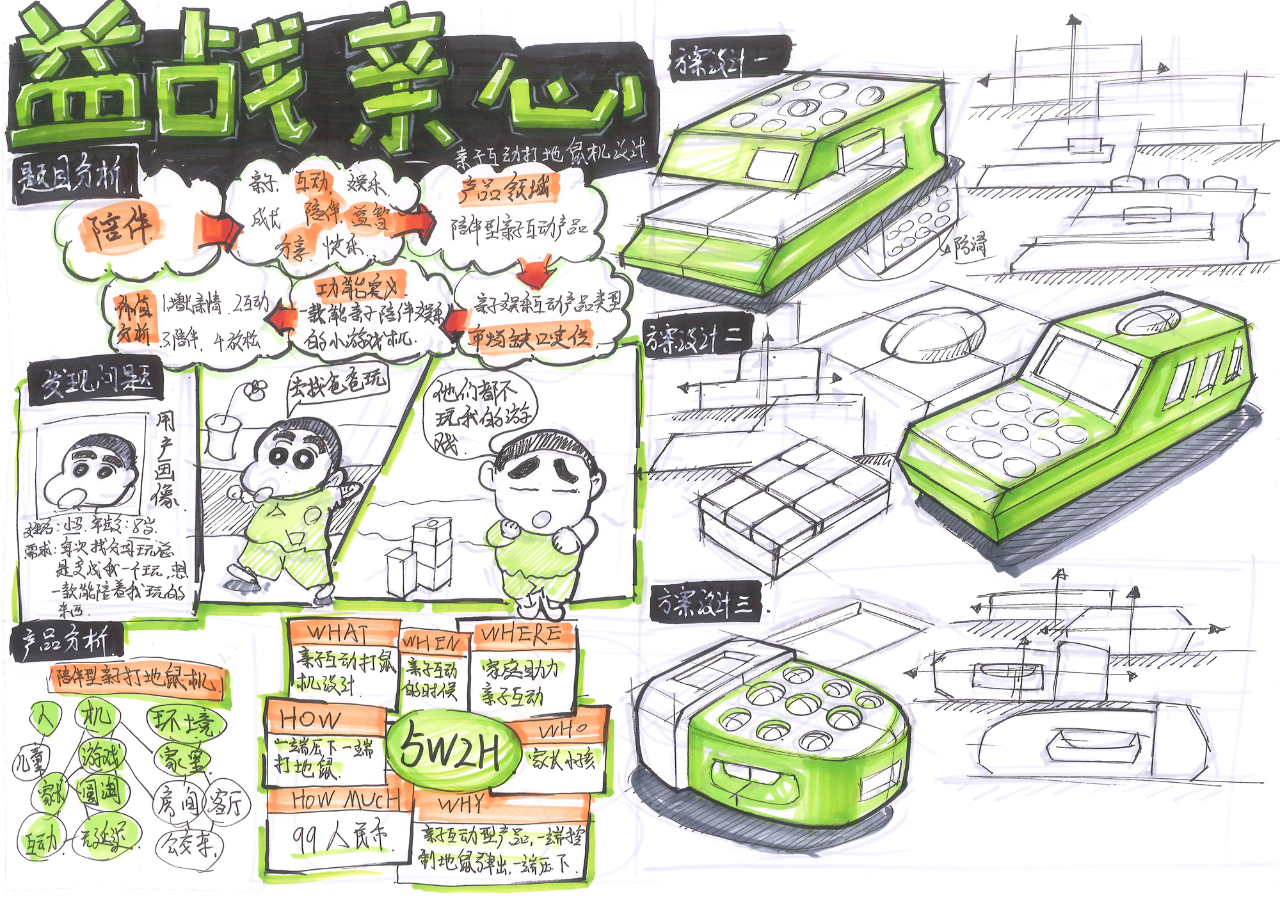 益战亲心
亲子互动打地鼠机设计
题目分析
陪伴
亲子 互动 娱乐
成长 陪伴 益智
分享 快乐
产品领域
陪伴型亲子互动产品
亲子娱乐互动产品类型
市场缺口定位
功能定义
一款能亲子陪伴娱乐
的小游戏机.
价值
分析
1.增亲情 2.互动
3.陪伴. 4.放松
发现问题
用户画像
姓名:小马.年龄:8岁.
需求:每次找父母玩总
是变成我一个玩,想
一款能陪着我玩的
东西.
去找爸爸玩
他们都不
玩我的游
戏.
产品分析.
陪伴型亲子打地鼠机.
人 机 环境
儿童 游戏 家里
家长 圆润 房间 客厅
互动 公交车.
5W2H
WHAT
亲子互动打鼠
机设计.
WHEN
亲子互动
的时候
WHERE
家庭助力
亲子互动
HOW
一端压下一端
打地鼠.
WHO
家长小孩
HOW MUCH
99人民币.
WHY
亲子互动型产品,一端控
制地鼠弹出,一端压下.
方案设计一
防滑
方案设计二
方案设计三.